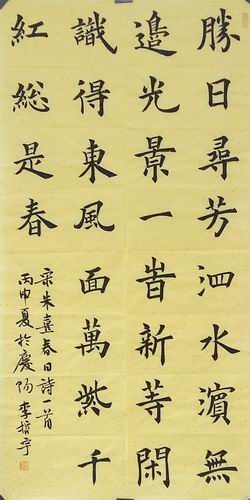 勝日尋芳泗水濱無
邉光景一旹新䓁閑
識得東風面萬紫千
紅総是春
宋朱熹春日詩一首
丙申夏於慶陽李